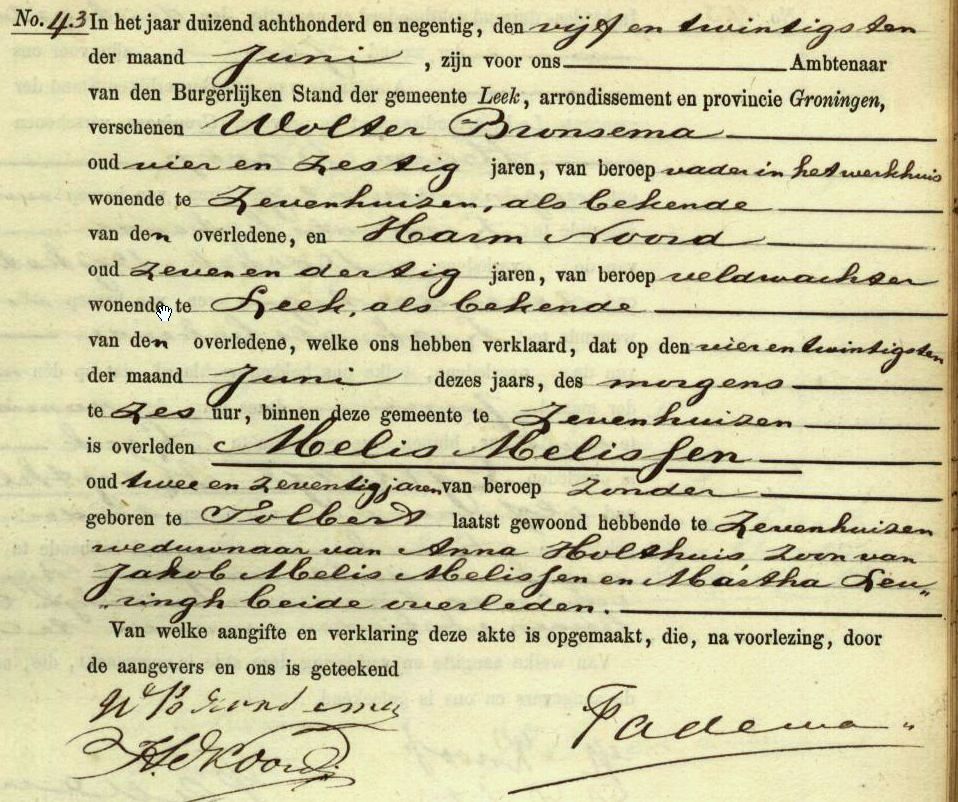 No. 43 In het jaar duizend achthonderd en negentig, den vijf en twintigsten
der maand Juni, zijn voor ons Ambtenaar
van den Burgerlijken Stand der gemeente Leek, arrondissement en provincie Groningen,
verschenen Wolter Bronsema
oud vier en zestig jaren, van beroep vader in het werkhuis
wonende te Zevenhuizen, als bekende
van den overledene, en Harm Noord
oud zeven en dertig jaren, van beroep veldwachter
wonende te Leek, als bekende
van den overledene, welke ons hebben verklaard, dat op den vier en twintigsten
der maand Juni dezes jaars, des morgens
te zes uur, binnen deze gemeente te Zevenhuizen
is overleden Melis Melissen
oud twee en zeventig jaren, van beroep zonder
geboren te Tolbert laatst gewoond hebbende te Zevenhuizen
weduwnaar van Anna Holthuis, zoon van
Jakob Melis Melissen en Martha Leu„
„ringh beide overleden.
Van welke aangifte en verklaring deze akte is opgemaakt, die, na voorlezing, door
de aangevers en ons is geteekend
W Bronsema
H Noord